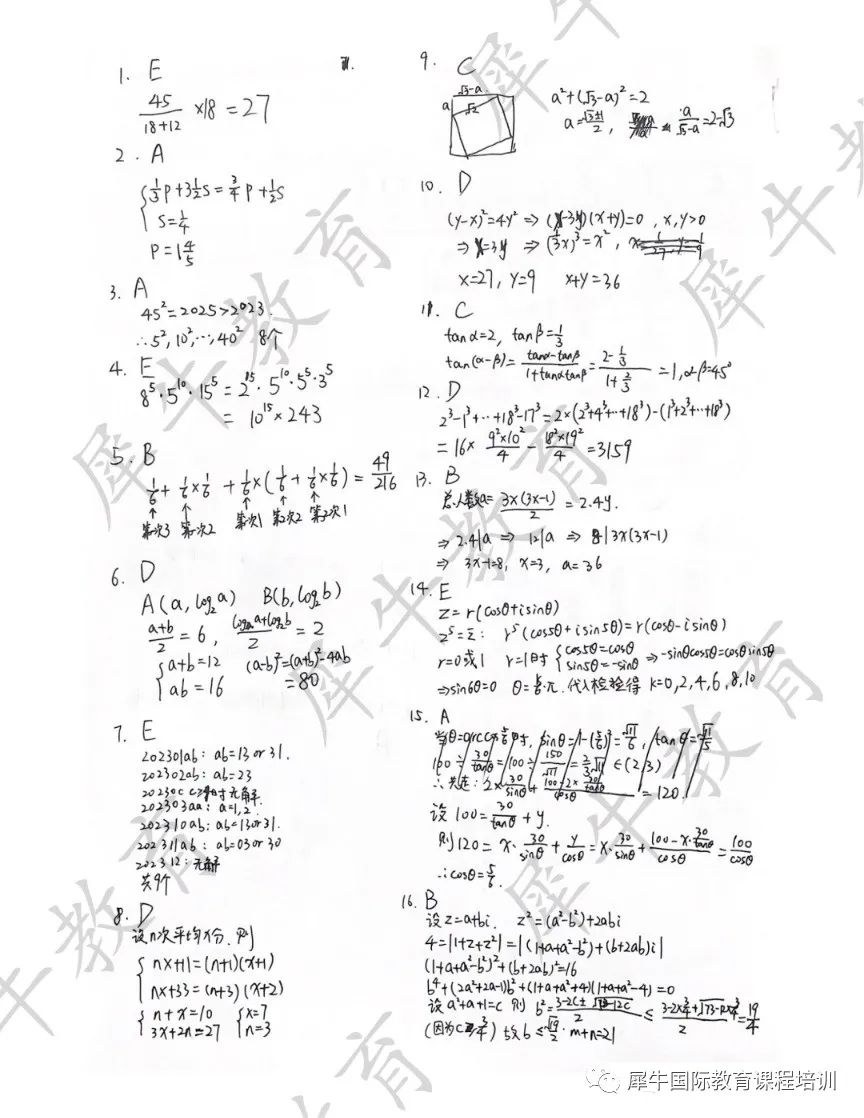 1. E
45/(18+12) ×18 = 27
2. A
{ 1/3 P + 3 1/2 S = 3/4 P + 1/2 S
S = 1/4
P = 1 4/5
3. A
45² = 2025 > 2023.
∴ 5², 10², ..., 40² 8个
4. E
8⁵·5¹⁰·15⁵ = 2¹⁵·5¹⁰·5⁵·3⁵
= 10¹⁵ × 243
5. B
1/6 + 1/6×1/6 + 1/6×(1/6 + 1/6×1/6) = 49/216
↑ ↑ ↑ ↑ ↑
第一次3 第一次2 第一次1 第二次2 第二次1
6. D
A(a, log₂a) B(b, log₂b)
(a+b)/2 = 6, (log₂a+log₂b)/2 = 2
{ a+b=12 (a-b)²=(a+b)²-4ab
ab=16 =80
7. E
202301ab: ab=13 or 31.
202302ab: ab=23
202303aa: a=1,2.
202310ab: ab=13or31.
202311ab: ab=03 or 30
202312: 无解
共9个
8. D
设n次平均x分, 则
{ nx+11=(n+1)(x+1)
nx+33=(n+3)(x+2)
{ n+x=10 { x=7
3x+2n=27 n=3
9. C
√3-a
a √2
a²+(√3-a)²=2
a=(√3±1)/2, a/(√3-a)=2-√3
10. D
(y-x)²=4y² ⇒ (x-3y)(x+y)=0, x,y>0
⇒ x=3y ⇒ (1/3 x)³=x²,
x=27, y=9 x+y=36
11. C
tanα=2, tanβ=1/3
tan(α-β)= (tanα-tanβ)/(1+tanαtanβ) = (2-1/3)/(1+2/3) =1, α-β=45°
12. D
2³-1³+...+18³-17³=2×(2³+4³+...+18³)-(1³+2³+...+18³)
=16× 9²×10²/4 - 18²×19²/4 =3159
13. B
总人数a= 3x(3x-1)/2 = 2.4y.
⇒ 2.4|a ⇒ 12|a ⇒ 8|3x(3x-1)
⇒ 3x-1=8, x=3, a=36
14. E
z=r(cosθ+isinθ)
z⁵=z̄: r⁵(cos5θ+isin5θ)=r(cosθ-isinθ)
r=0或1 r=1时 { cos5θ=cosθ sin5θ=-sinθ ⇒ -sinθcos5θ=cosθsin5θ
⇒sin6θ=0 θ=k/6·π. 代入检验得 k=0,2,4,6,8,10
15. A
设 100= 30/tanθ + y.
则120= x·30/sinθ + y/cosθ = x·30/sinθ + (100-x·30/tanθ)/cosθ = 100/cosθ
∴cosθ=5/6.
16. B
设z=a+bi. z²=(a²-b²)+2abi
4=|1+z+z²|=|(1+a+a²-b²)+(b+2ab)i|
(1+a+a²-b²)²+(b+2ab)²=16
b⁴+(2a²+2a-1)b²+(1+a+a²+4)(1+a+a²-4)=0
设a²+a+1=c 则 b²= (3-2c±√(73-12c))/2 ≤ (3-2×3/4+√(73-12×3/4))/2 = 19/4
(因为c≥3/4) 故b≤√19/2. m+n=21
犀牛教育
犀牛教育
犀牛教育
犀牛教育
犀牛教育
犀牛国际教育课程培训